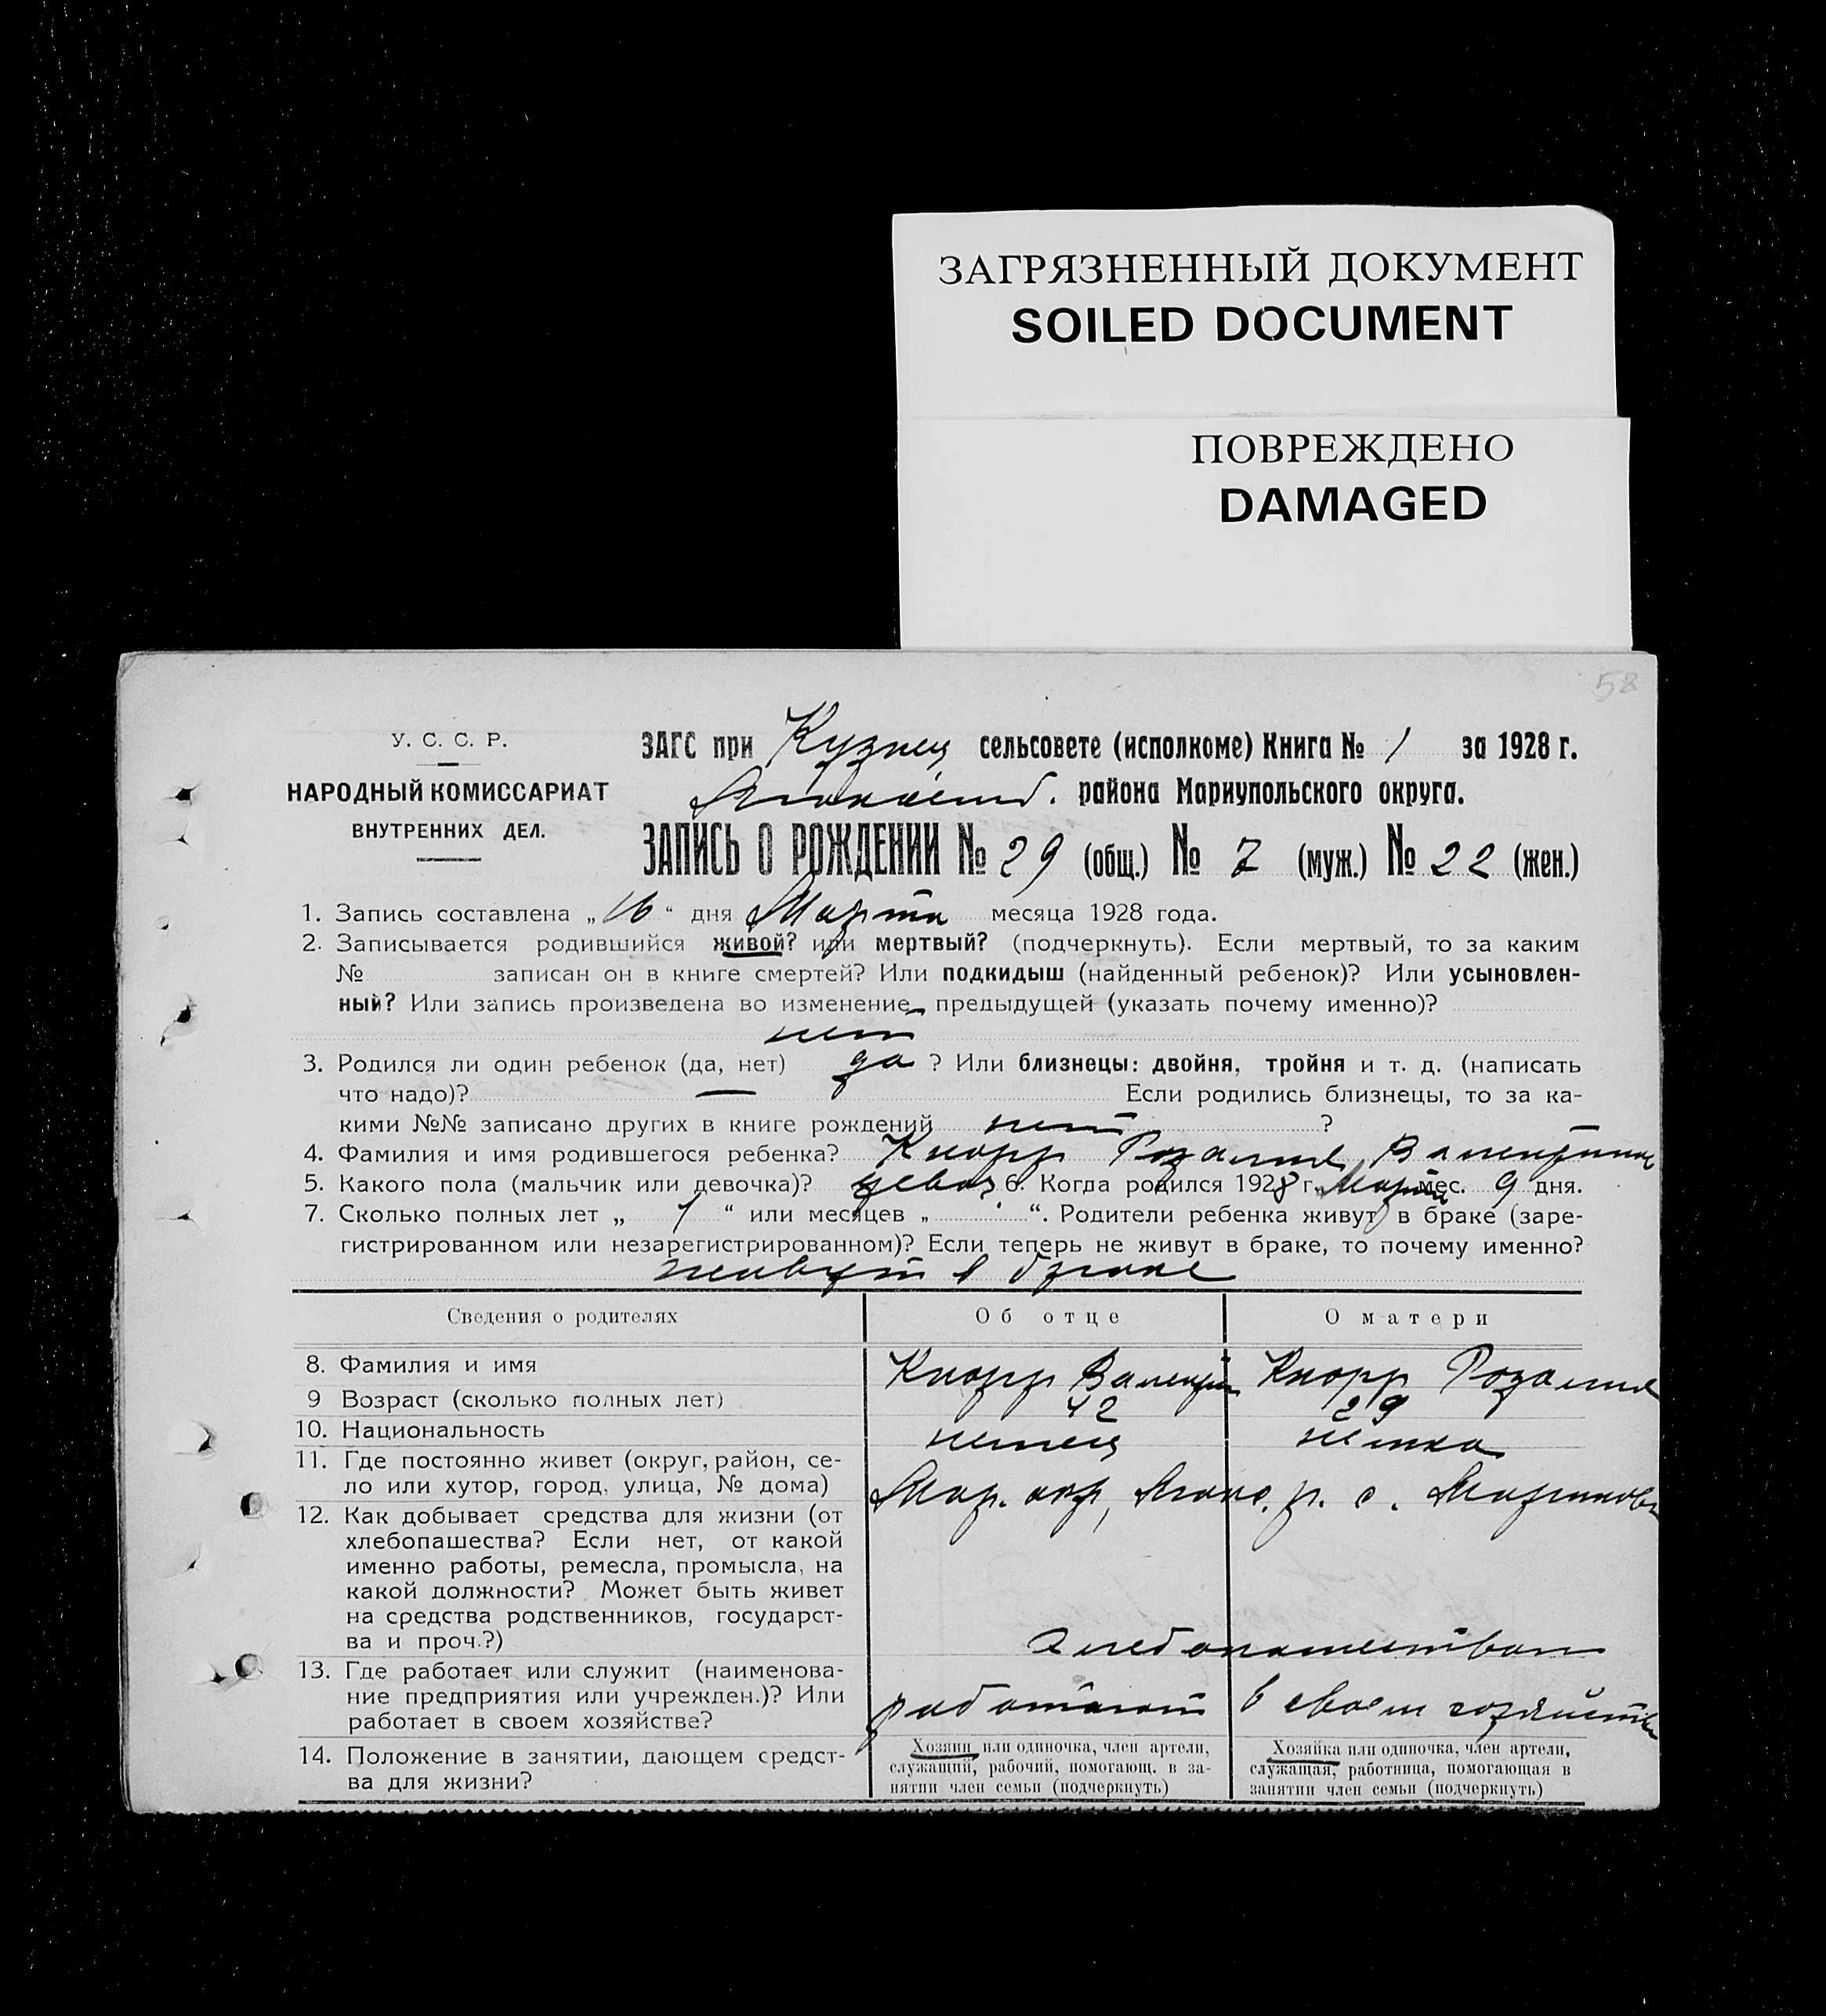 ЗАГРЯЗНЕННЫЙ ДОКУМЕНТ
SOILED DOCUMENT
ПОВРЕЖДЕНО
DAMAGED
58
У. С. С. Р.
НАРОДНЫЙ КОМИССАРИАТ
ВНУТРЕННИХ ДЕЛ.
ЗАГС при Кузнец сельсовете (исполкоме) Книга № 1 за 1928 г.
района Мариупольского округа.
ЗАПИСЬ О РОЖДЕНИИ № 29 (общ.) № 7 (муж.) № 22 (жен.)
1. Запись составлена „16“ дня Марта месяца 1928 года.
2. Записывается родившийся живой? или мертвый? (подчеркнуть). Если мертвый, то за каким
№ записан он в книге смертей? Или подкидыш (найденный ребенок)? Или усыновлен-
ный? Или запись произведена во изменение предыдущей (указать почему именно)?
нет
3. Родился ли один ребенок (да, нет) да ? Или близнецы: двойня, тройня и т. д. (написать
что надо)? — Если родились близнецы, то за ка-
кими №№ записано других в книге рождений нет ?
4. Фамилия и имя родившегося ребенка? Кнорр Розалия Валентина
5. Какого пола (мальчик или девочка)? девоч 6. Когда родился 1928 г. Марта мес. 9 дня.
7. Сколько полных лет „ 1 “ или месяцев „ “. Родители ребенка живут в браке (заре-
гистрированном или незарегистрированном)? Если теперь не живут в браке, то почему именно?
живут в браке
Сведения о родителях Об отце О матери
8. Фамилия и имя Кнорр Валентин Кнорр Розалия
9 Возраст (сколько полных лет) 42 29
10. Национальность немец немка
11. Где постоянно живет (округ, район, се-
ло или хутор, город, улица, № дома) Мар. окр, р. с.
12. Как добывает средства для жизни (от
хлебопашества? Если нет, от какой
именно работы, ремесла, промысла, на
какой должности? Может быть живет
на средства родственников, государст-
ва и проч.?) хлебопашеством
13. Где работает или служит (наименова-
ние предприятия или учрежден.)? Или
работает в своем хозяйстве? работают в своем хозяйстве
14. Положение в занятии, дающем средст-
ва для жизни?
Хозяин или одиночка, член артели,
служащий, рабочий, помогающ. в за-
нятии член семьи (подчеркнуть)
Хозяйка или одиночка, член артели,
служащая, работница, помогающая в
занятии член семьи (подчеркнуть)